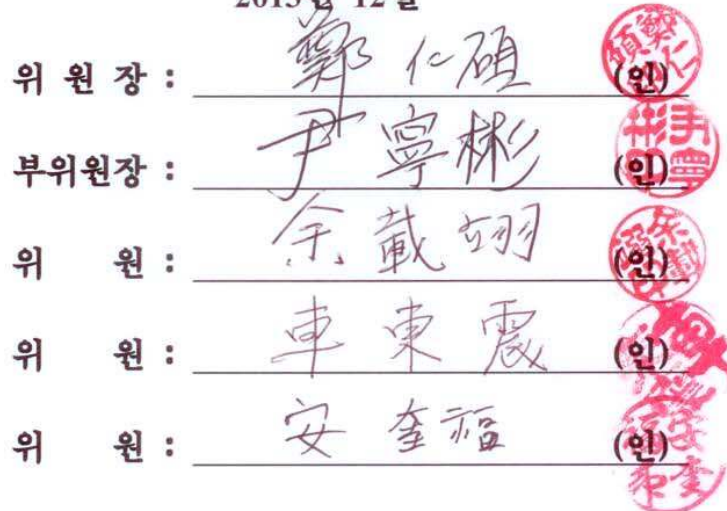 2013년 12월
위 원 장 : 鄭 仁 碩 (인)
부위원장 : 尹 寧 彬 (인)
위 원 : 余 載 翊 (인)
위 원 : 車 東 震 (인)
위 원 : 安 奎 福 (인)